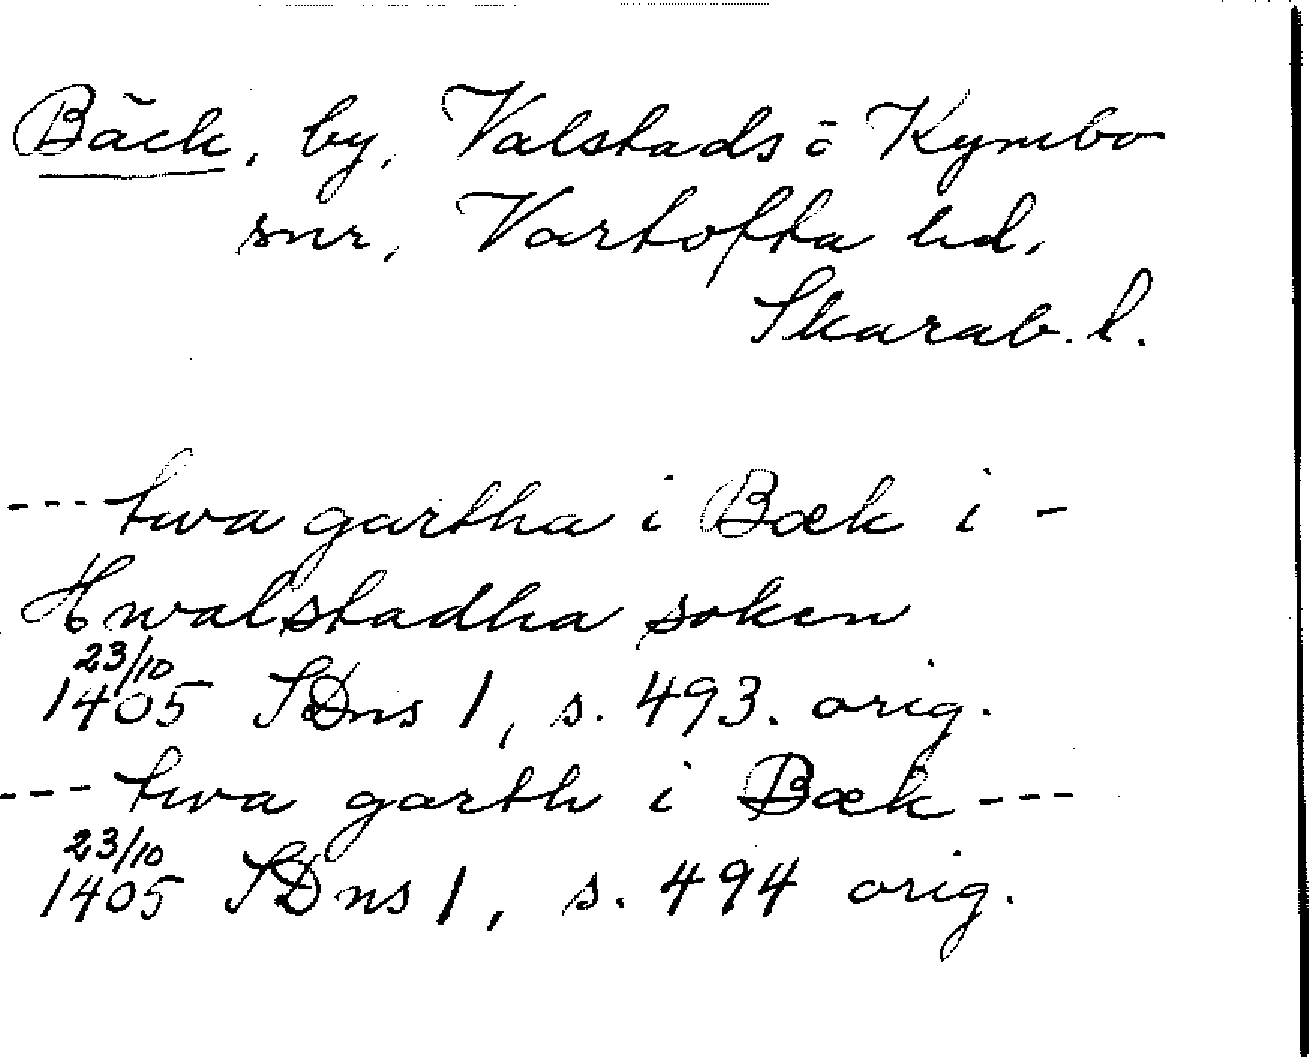 Bäck, by, Valstads o Kymbo
snr, Vartofta hd.
Skarab. l.
--- twa gartha i Bæk i -
Hwalstadha soken
23/10
1405 SDns 1, s. 493. orig.
--- twa garth i Bæk ---
23/10
1405 SDns 1, s. 494 orig.